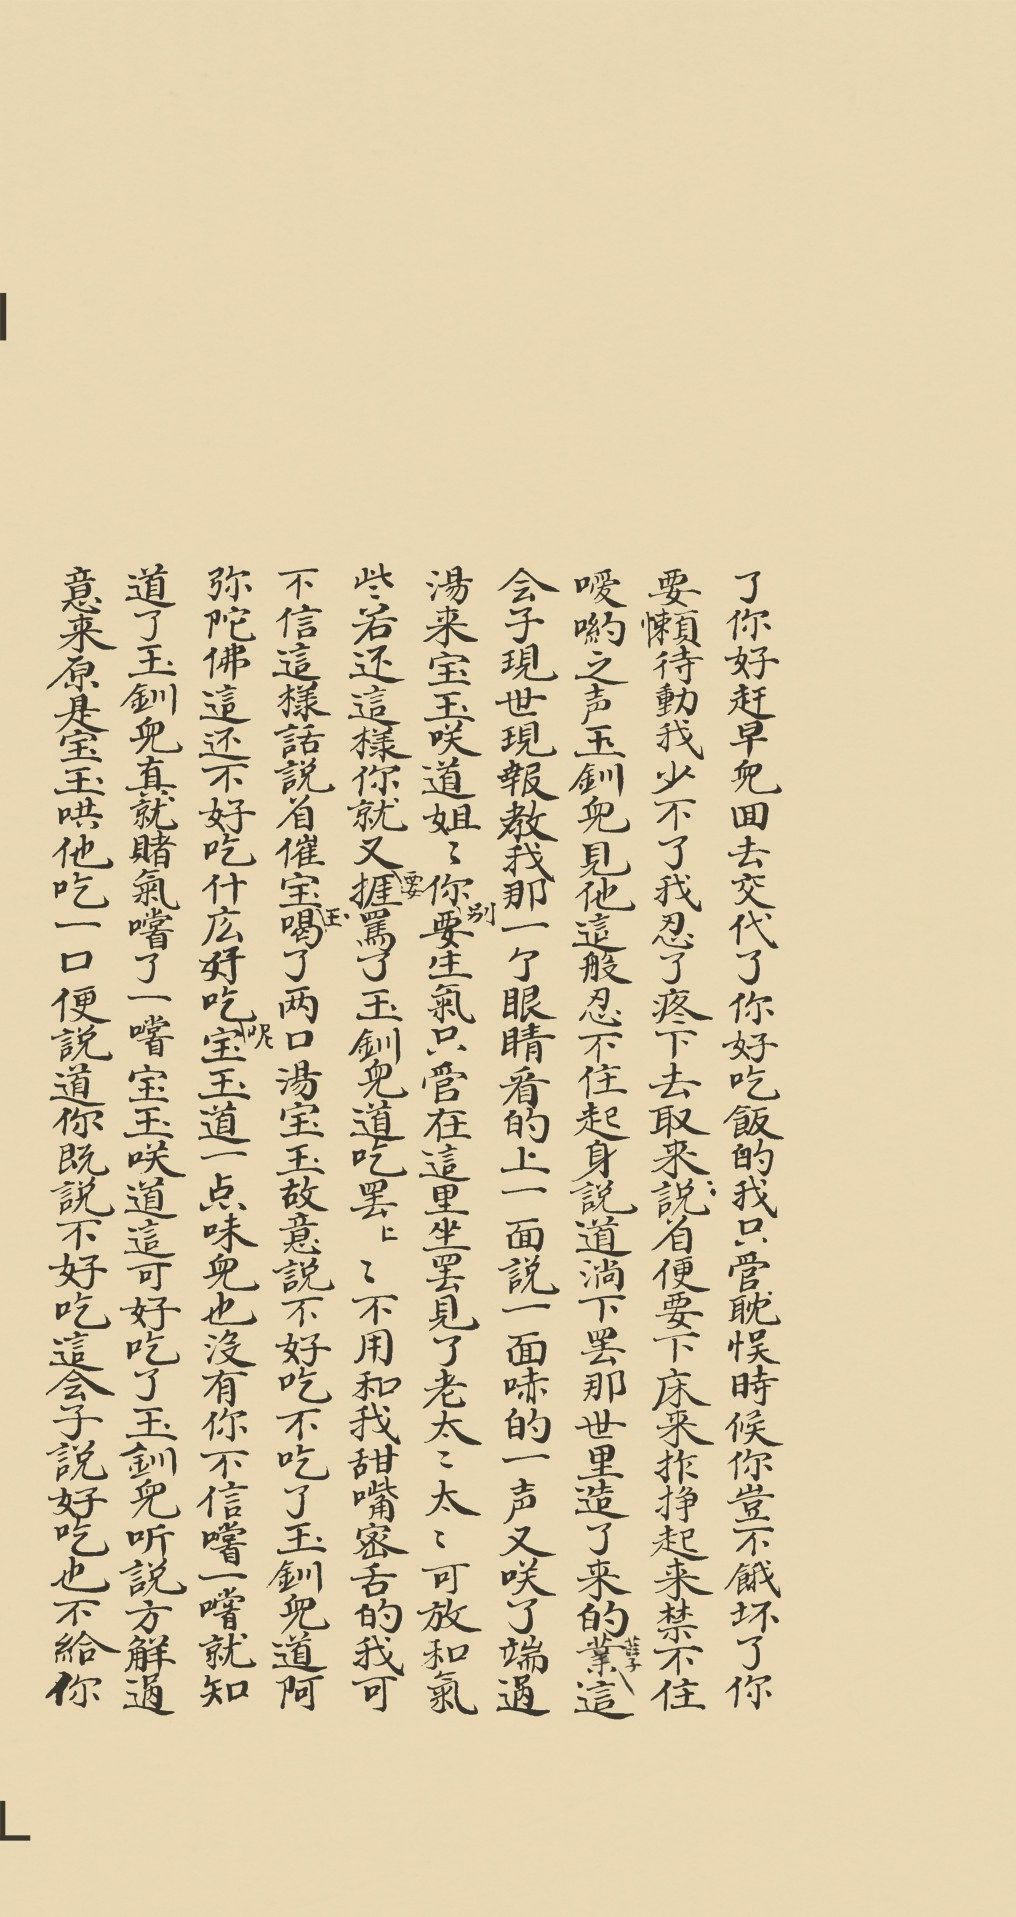 了你好赶早兒回去交代了你好吃飯的我只管耽悮時候你豈不餓坏了你
要懶待動我少不了我忍了疼下去取来説着便要下床来拃挣起来禁不住
噯喲之声玉釧兒見他這般忍不住起身説道淌下罢那世里造了来的業孽這
会子現世現報教我那一亇眼睛看的上一面説一面哧的一声又咲了端過
湯来宝玉咲道姐〻你别要生氣只管在這里坐罢見了老太〻太〻可放和氣
些若还這樣你就又要捱罵了玉釧兒道吃罢上〻不用和我甜嘴密舌的我可
不信這樣話説着催宝玉喝了两口湯宝玉故意説不好吃不吃了玉釧兒道阿
弥陀佛這还不好吃什庅好吃呢宝玉道一点味兒也没有你不信嚐一嚐就知
道了玉釧兒真就賭氣嚐了一嚐宝玉咲道這可好吃了玉釧兒听説方解過
意来原是宝玉哄他吃一口便説道你既説不好吃這会子説好吃也不給你